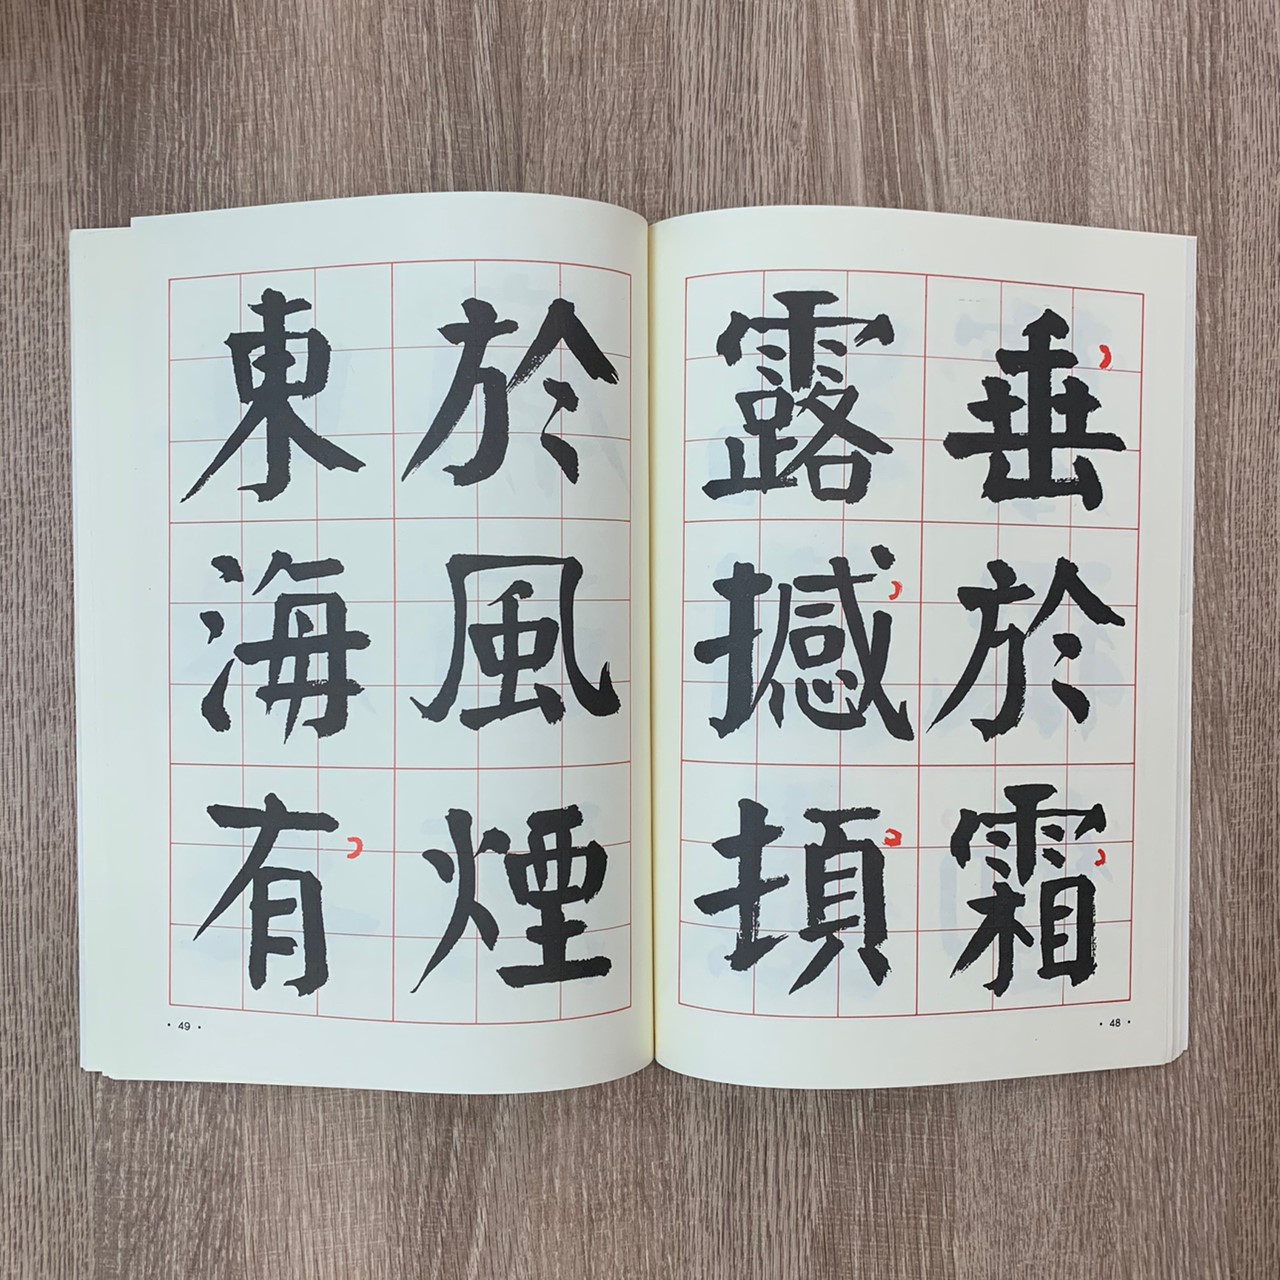 垂於霜
露撼頓
· 48 ·
於風煙
東海有
· 49 ·